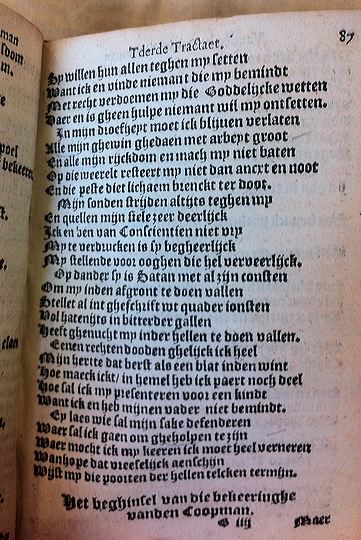 Tderde Tractaet. 87
Sy willen hun allen teghen my setten
Want ick en vinde niemant die my bemindt
Met recht verdoemen my die Goddelijcke wetten
Daer en is gheen hulpe niemant wil my ontsetten.
In mijn droefheyt moet ick blijuen verlaten
Alle mijn ghewin ghedaen met arbeyt groot
En alle mijn rijckdom en mach my niet baten
Op die weerelt resteert my niet dan ancxt en noot
En die peste die lichaem brenckt ter doot.
Mijn sonden strijden altijts teghen my
En quellen mijn siele zeer deerlijck
Ick en ben van Conscientien niet vry
My te verdrucken is sy begheerlijck
My stellende voor ooghen die hel verveerlijck.
Op dander sy is Satan met al zijn consten
Om my inden afgront te doen vallen
Stellet al int gheschrift wt quader ionsten
Vol hatenijts in bitterder gallen
Heeft ghenucht my inder hellen te doen vallen.
Eenen rechten dooden ghelijck ick heel
Mijn hertte dat berst als een blat inden wint
Hoe maeck ickt/ in hemel heb ick paert noch deel
Hoe sal ick my presenteren voor een kindt
Want ick en heb mijnen vader niet bemindt.
Ey laes wie sal mijn sake defenderen
Waer sal ick gaen om gheholpen te zijn
Waer mocht ick my keeren ick moet heel verneren
Wanhope dat vreeselijck aenschijn
Wijst my die poorten der hellen telcken termijn.
Het beghinsel van die bekeeringhe
vanden Coopman.
G iiij Maer
man
sdom
m.
poel
bekeere